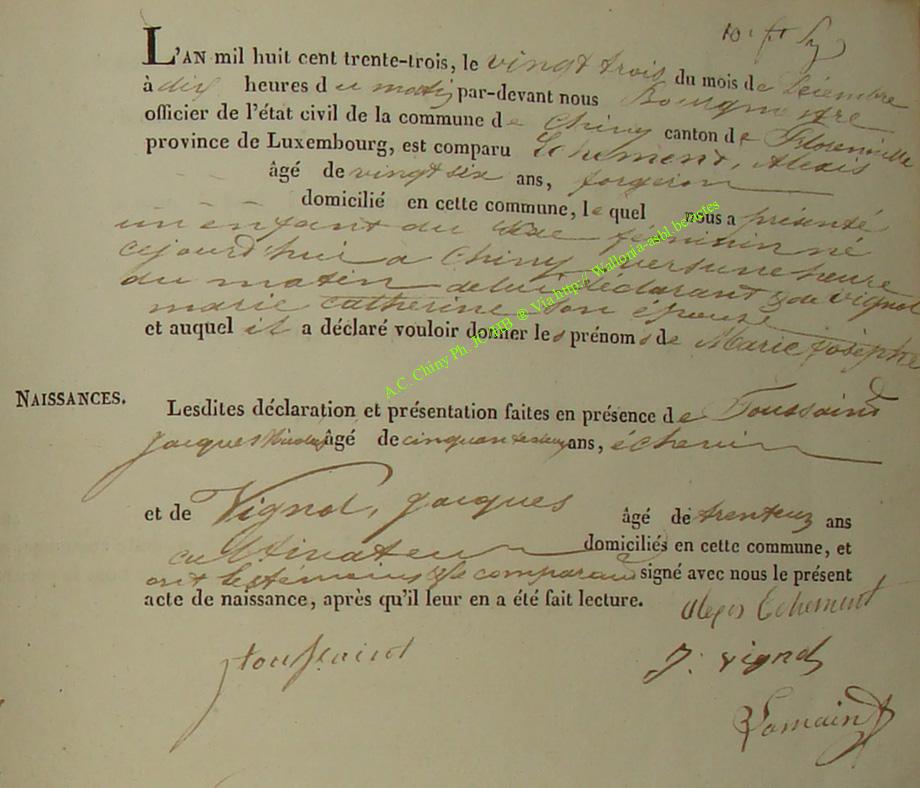 L'AN mil huit cent trente-trois, le vingt trois du mois de Décembre
à dix heures du matin par-devant nous Bourgmestre
officier de l'état civil de la commune de Chiny canton de Florenville
province de Luxembourg, est comparu Echement, Alexis
âgé de vingt six ans, forgeron
domicilié en cette commune, le quel nous a présenté
un enfant du sexe féminin né
cejourd'hui a Chiny vers une heure
du matin de lui déclarant & de Vignol
marie catherine son épouse
et auquel il a déclaré vouloir donner les prénoms de Marie Josèphe
NAISSANCES.
Lesdites déclaration et présentation faites en présence de Toussaind
Jacques Nicolas âgé de cinquante deux ans, échevin
et de Vignol, Jacques âgé de trente ans
cultivateur domiciliés en cette commune, et
ont les témoins & le comparant signé avec nous le présent
acte de naissance, après qu'il leur en a été fait lecture.
alexis Echement
J toussaint
J. vignol
A.C. Chiny Ph. JCMB @ Via http:// Wallonia-asbl.be/notes